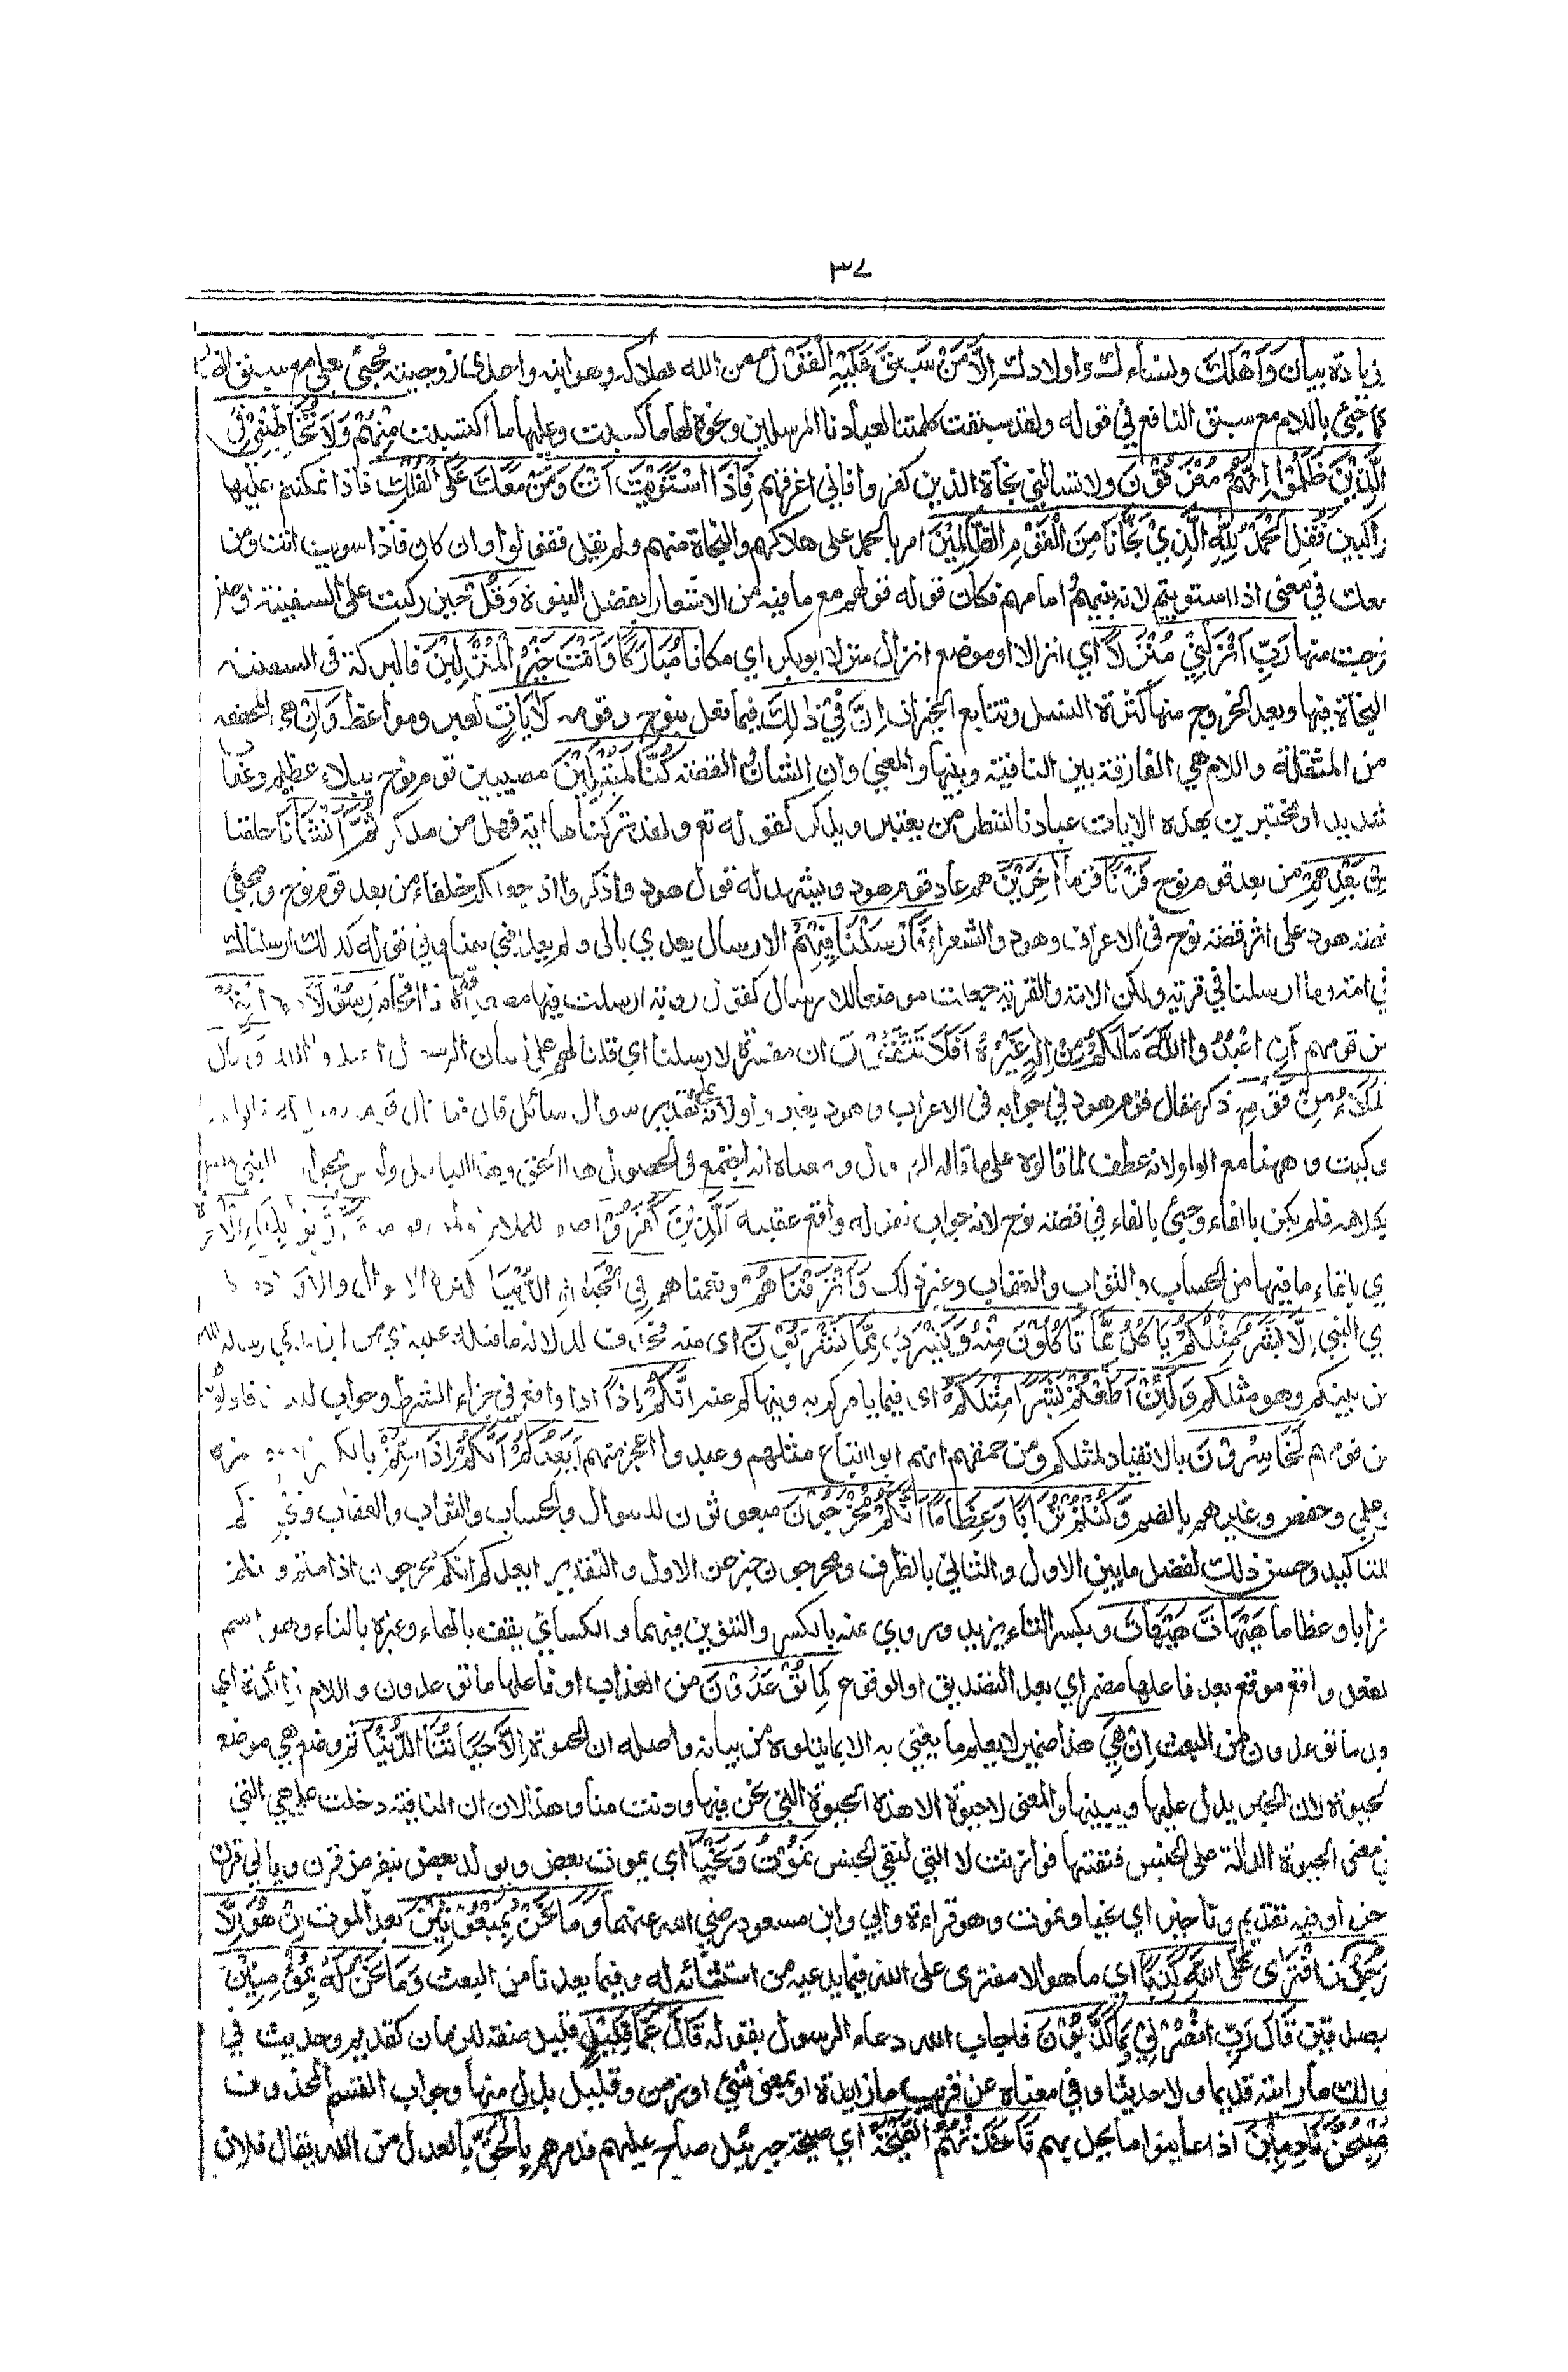 ٣٧
زيادة بيان وَاَهْلَكَ ونساءك واولادك اِلَّا مَنْ سَبَقَ عَلَيْهِ الْقَوْلُ من الله بهلاكه وهو ابنه واحدى زوجيته فجيئ بعلى مع سبق
كما جيئ باللام مع سبق النافع في قوله ولقد سبقت كلمتنا لعبادنا المرسلين ونحوه لها ما كسبت وعليها ما اكتسبت مِنْهُمْ وَلَا تُخَاطِبْنِيْ فِي
الَّذِيْنَ ظَلَمُوْا اِنَّهُمْ مُغْرَقُوْنَ ولا تسالني نجاة الذين كفروا فاني اغرقهم فَاِذَا اسْتَوَيْتَ اَنْتَ وَمَنْ مَعَكَ عَلَى الْفُلْكِ فاذا تمكنتم عليها
راكبين فَقُلِ الْحَمْدُ لِلّٰهِ الَّذِيْ نَجَّانَا مِنَ الْقَوْمِ الظَّالِمِيْنَ امر بالحمد على هلاكهم والنجاة منهم ولم يقل فقولوا وان كان فاذا سويت انت ومن
معك في معنى اذا استويتم لانه نبيهم امامهم فكان قوله قولهم مع ما فيه من الاشعار بفضل النبوة وَقُلْ حين ركبت على السفينة
منها رَبِّ اَنْزِلْنِيْ مُنْزَلًا اي انزالا او موضع انزال منزلا ابوبكر اي مكانا مُبَارَكًا وَاَنْتَ خَيْرُ الْمُنْزِلِيْنَ فالبركة فى السفينة
النجاة فيها وبعد الخروج منها كثرة النسل وتتابع الخيرات اِنَّ فِيْ ذٰلِكَ فيما فعل بنوح وقومه لَاٰيَاتٍ لعبر ومواعظ وَاِنْ هي المخففة
من المثقلة واللام هي الفارقة بين النافية وبينها والمعنى وان الشان والقصة كُنَّا لَمُبْتَلِيْنَ مصيبين قوم نوح ببلاء عظيم وعقاب
شديد او مختبرين بهذه الايات عبادنا لننظر من يعتبر ويذكر كقوله تع ولقد تركناها اية فهل من مدكر ثُمَّ اَنْشَاْنَا خلقنا
مِنْ بَعْدِهِمْ من بعد قوم نوح قَرْنًا اٰخَرِيْنَ هم عاد قوم هود ويشهد له قول هود واذكروا اذ جعلكم خلفاء من بعد قوم نوح ومجيئ
قصة هود على اثر قصة نوح فى الاعراف وهود والشعراء فَاَرْسَلْنَا فِيْهِمْ الارسال يعدي بالى ولم يعد بفي هنا وفي قوله كذلك ارسلناك
في امة وما ارسلنا في قرية ولكن الامة والقرية جعلت موضعا للارسال كقول روبة ارسلت فيها مصعبا ذا اقحام رَسُوْلًا
من قومهم اَنِ اعْبُدُوا اللّٰهَ مَا لَكُمْ مِنْ اِلٰهٍ غَيْرُهُ اَفَلَا تَتَّقُوْنَ ان مفسرة لارسلنا اي قلنا لهم على لسان الرسول اعبدوا الله وَقَالَ
الْمَلَاُ مِنْ قَوْمِهِ ذكر مقال قوم هود في جوابه فى الاعراف وهود بغير واو لانه على تقدير سوال سائل قال فما قال قومه
وكيت وههنا مع الواو لانه عطف لما قالوه على ما قاله الرسول ومعناه انه اجتمع فى الحصول هذا الحق وهذا الباطل وليس بجواب النبي
بكلامه فلم يكن بالفاء وجيئ بالفاء في قصة نوح لانه جواب لقوله واقع عقيبه الَّذِيْنَ كَفَرُوْا صفة للملا وَكَذَّبُوْا بِلِقَاءِ الْاٰخِرَةِ
ي بلقاء ما فيها من الحساب والثواب والعقاب وغير ذلك وَاَتْرَفْنَاهُمْ ونعمناهم فِي الْحَيٰوةِ الدُّنْيَا بكثرة الاموال والاولاد
ي النبي اِلَّا بَشَرٌ مِثْلُكُمْ يَاْكُلُ مِمَّا تَاْكُلُوْنَ مِنْهُ وَيَشْرَبُ مِمَّا تَشْرَبُوْنَ اى منه فحذف لدلالة ما قبله عليه
من بينكم وهو مثلكم وَلَئِنْ اَطَعْتُمْ بَشَرًا مِثْلَكُمْ اى فيما يامركم به وينهاكم عنه اِنَّكُمْ اِذًا اذا واقع في جزاء الشرط وجواب للذين قاولوهم
من قومهم لَخَاسِرُوْنَ بالانقياد لمثلكم ومن حمقهم انهم ابوا اتباع مثلهم وعبدوا اعجز منهم اَيَعِدُكُمْ اَنَّكُمْ اِذَا مِتُّمْ بالكسر
وعلي وحفص وغيرهم بالضم وَكُنْتُمْ تُرَابًا وَعِظَامًا اَنَّكُمْ مُخْرَجُوْنَ مبعوثون للسوال والحساب والثواب والعقاب وثني انكم
للتاكيد وحسن ذلك لفصل ما بين الاول والثاني بالظرف ومخرجون خبر عن الاول والتقدير ايعدكم انكم مخرجون اذا متم وكنتم
ترابا وعظاما هَيْهَاتَ هَيْهَاتَ وبكسر التاء يزيد وروي عنه بالكسر والتنوين فيهما والكسائي يقف بالهاء وغيره بالتاء وهو اسم
لفعل واقع موقع بعد فاعلها مضمر اي بعد التصديق او الوقوع لِمَا تُوْعَدُوْنَ من العذاب او فاعلها ما توعدون واللام زائدة اي
بعد ما توعدون من البعث اِنْ هِيَ هذا ضمير لا يعلم ما يعني به الا بما يتلوه من بيانه واصله ان الحيوة اِلَّا حَيَاتُنَا الدُّنْيَا ثم وضع هي موضع
الحيوة لان الخبر يدل عليها ويبينها والمعنى لا حيوة الا هذه الحيوة التي نحن فيها ودنت منا وهذا لان ان النافية دخلت على هي التي
في معنى الحيوة الدالة على الجنس فنفتها فوازنت لا التي لنفي الجنس نَمُوْتُ وَنَحْيَا اي يموت بعض ويولد بعض ينقرض قرن وياتي قرن
اخر او فيه تقديم وتاخير اي نحيا ونموت وهو قراءة وابي وابن مسعود رضي الله عنهما وَمَا نَحْنُ بِمَبْعُوْثِيْنَ بعد الموت اِنْ هُوَ اِلَّا
رَجُلٌ افْتَرَى عَلَى اللّٰهِ كَذِبًا اي ما هو الا مفترى على الله فيما يدعيه من استنبائه له وفيما يعدنا من البعث وَمَا نَحْنُ لَهُ بِمُؤْمِنِيْنَ
بمصدقين قَالَ رَبِّ انْصُرْنِيْ بِمَا كَذَّبُوْنَ فاجاب الله دعاء الرسول بقوله قَالَ عَمَّا قَلِيْلٍ قليل صفة للزمان كقديم وحديث في
قولك ما رايته قديما ولا حديثا وفي معناه عن قريب وما زايدة او بمعنى شيئ او زمن وقليل بدل منها وجواب القسم المحذوف
لَيُصْبِحُنَّ نَادِمِيْنَ اذا عاينوا ما يحل بهم فَاَخَذَتْهُمُ الصَّيْحَةُ اي صيحة جبرئيل صاح عليهم فدمرهم بِالْحَقِّ بالعدل من الله يقال فلان